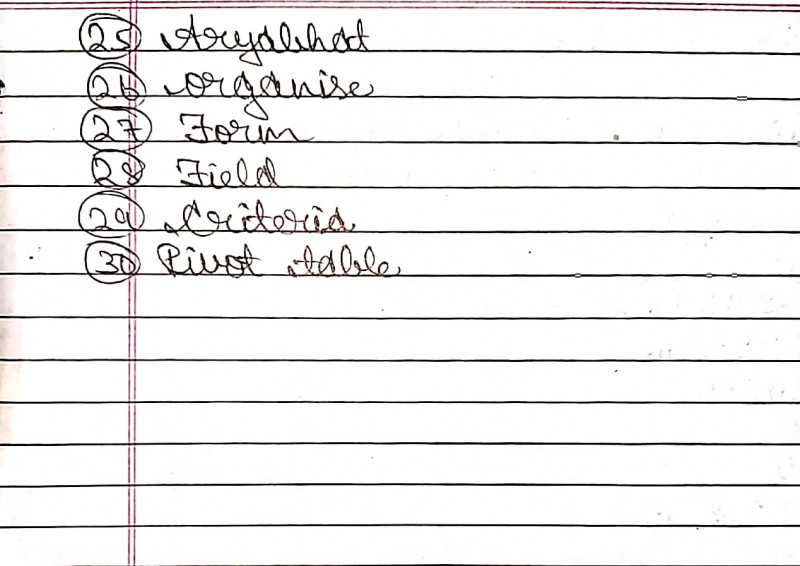 25 Aryabhat
26 organise
27 Form
28 Field
29 Criteria
30 Pivot table